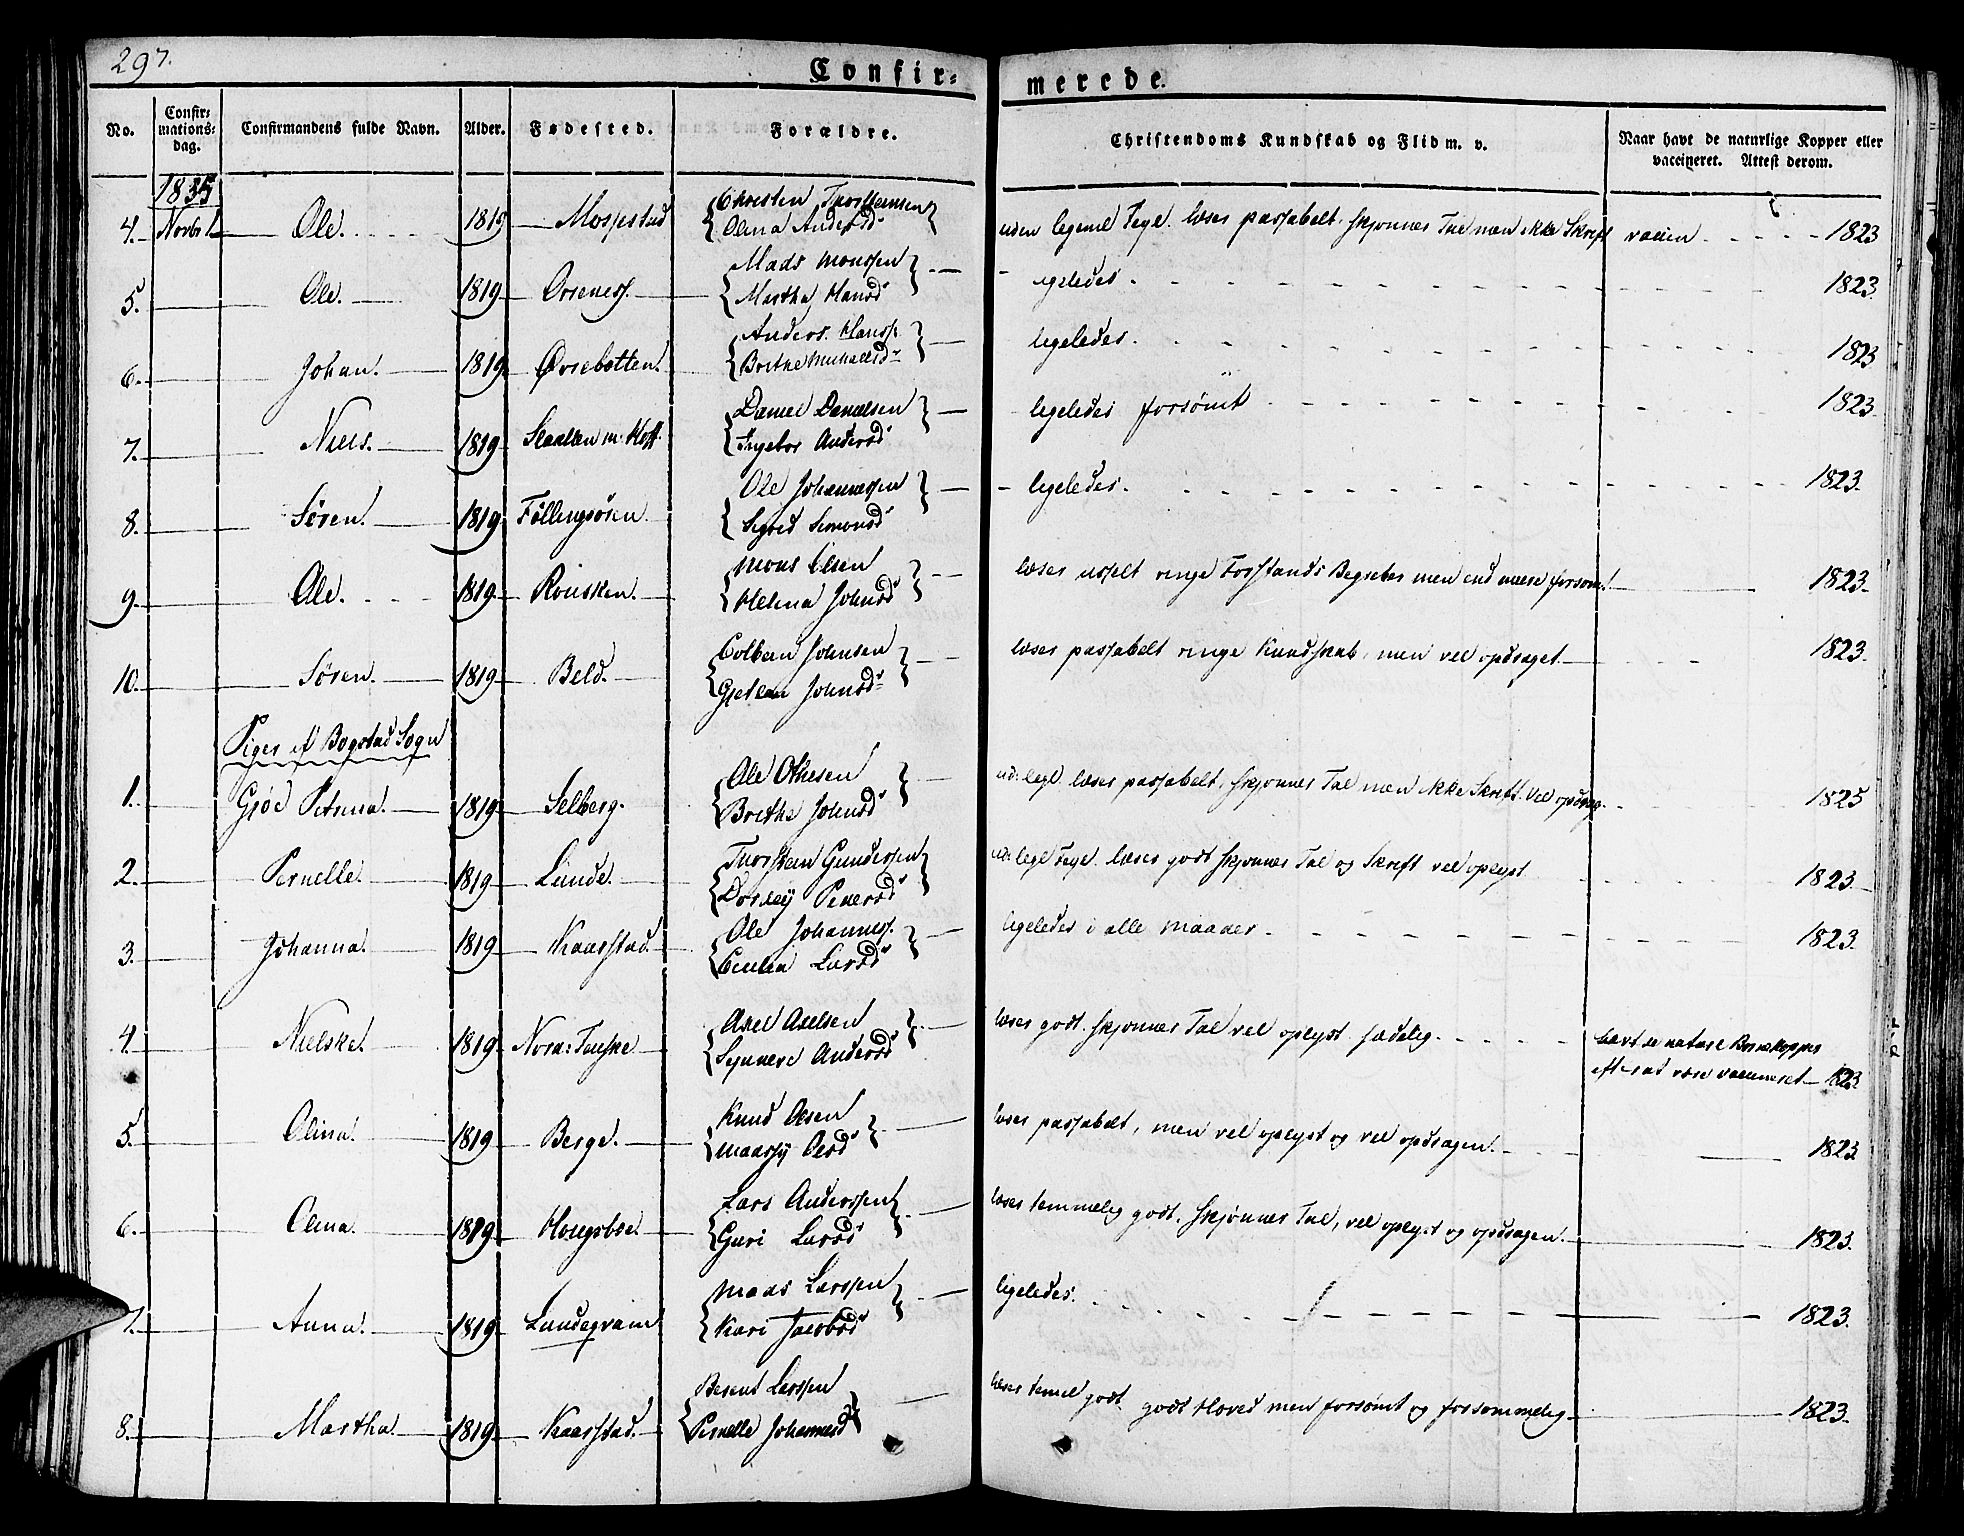 297.
Confir=
merede.
No.
Confir=
mations=
dag.
Confirmandens fulde Navn.
Alder.
Fødested.
Forældre.
Christendoms Kundskab og Flid m. v.
Naar havt de naturlige Kopper eller
vaccineret. Attest derom.
1835
4. Novbr 1 Ole. 1819 Mosestad Christen Thorsteinsen
Olina Andersd uden legeml Fegl. læser passabelt, skjønnes Tal men ikke Skrift vaccin 1823
5. Ole. 1819 Orseness. Mads Monssen
Martha Hansd ligeledes. 1823.
6. Johan. 1819 Ørsebotten. Anders Hanss.
Brithe Michaelsd ligeledes. 1823
7. Niels. 1819 Slaatten m. Hoff. Daniel Danielsen
Ingebor Andersd ligeledes forsömt 1823.
8. Søren. 1819 Föllingsösen Ole Johannessen
Sigrid Simonsd ligeledes. 1823.
9. Ole. 1819 Rousken. Mons Olsen
Helena Johnsd læser usselt ringe Forstands Begreber men end mere forsömt 1823.
10. Søren. 1819 Beld. Colben Johnsen
Johnsd læser passabelt ringe Kundskab, men vel opdraget. 1823.
Piger af Bogstad Sogn
1. Gjøe Petrina. 1819 Selberg. Ole Olsen
Brithe Johnsd ud: legl læser passabelt, skjønnes Tal men ikke Skrift. Vel opdrag. 1825
2. Pernelle. 1819 Lunde. Thorsten Gundersen
Pedersd ud: legl Fegl. læser godt skjønnes Tal og Skrift vel oplyst 1823.
3. Johanna. 1819 Kaarstad. Ole Johanness.
Larsd ligeledes i alle Maader. 1823.
4. Nielske. 1819 Axel Axelsen
Synneve Andersd læser godt. skjønnes Tal vel oplyst sædelig. havt de naturl Børnekopper
efterat være vaccineret 1823
5. Olina. 1819 Berge. Knud Olsen
læser passabelt, men vel oplyst og vel opdragen. 1823.
6. Olina. 1819 Hougsbøe. Lars Anderssen
Guri Larsd læser temmelig godt. skjønnes Tal, vel oplyst og opdragen. 1823.
7. Anna. 1819 Lundegrain Mads Larssen
Kari Jacobsd ligeledes. 1823.
8. Martha. 1819 Kaarstad. Berent Larssen
Pernelle Johannesd læser temel godt godt Hoved men forsömt og forsömmelig 1823.